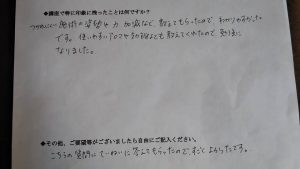 ◆講座で特に印象に残ったことは何ですか？
施術の姿勢や力加減など、教えてもらったので、わかりやすかった
です。使いやすいアロマや効能なども教えてくれたので、勉強に
なりました。
◆その他、ご要望等がございましたら自由にご記入ください。
こちらの質問にていねいに答えてもらったので、すごくよかったです。